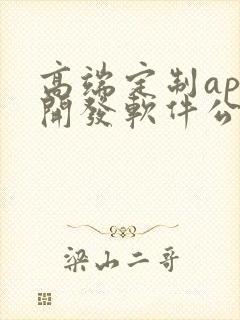 高端定制ap
開發軟件公
梁山二哥